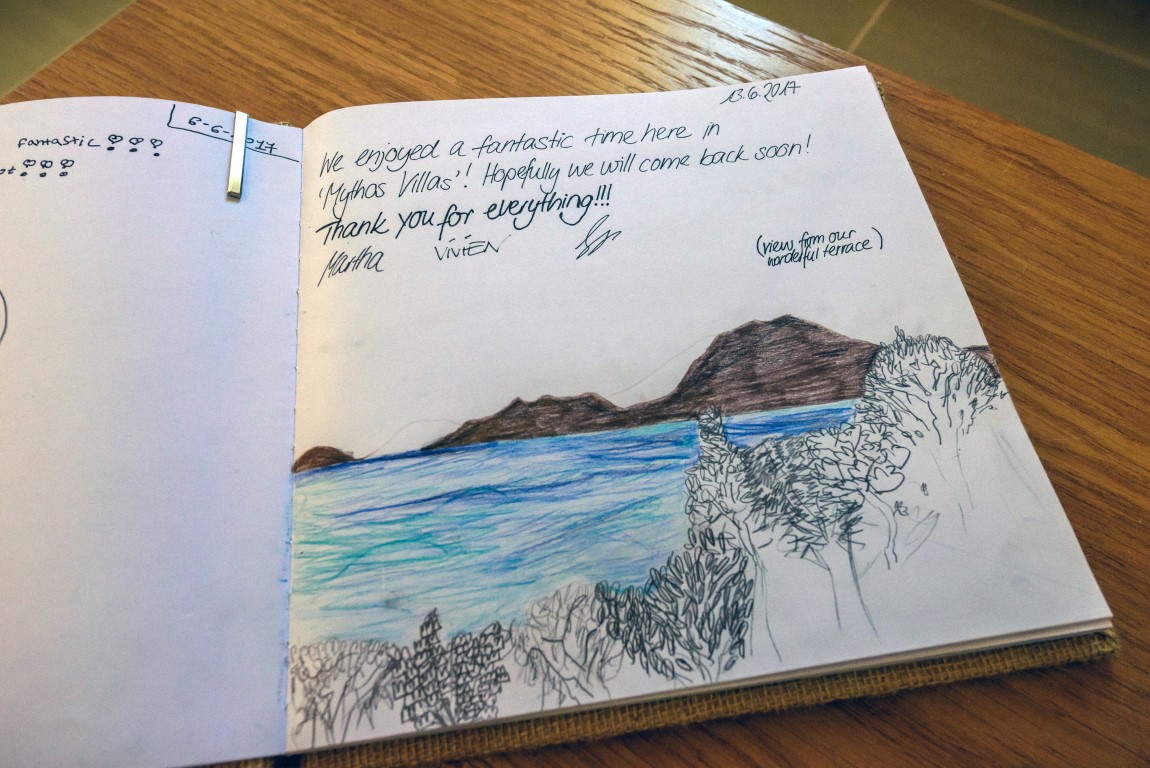 fantastic !!!
!!!
6-6-2017
13.6.2017
We enjoyed a fantastic time here in
'Mythos Villas'! Hopefully we will come back soon!
Thank you for everything!!!
Martha VIVIEN
(view from our
wonderful terrace)